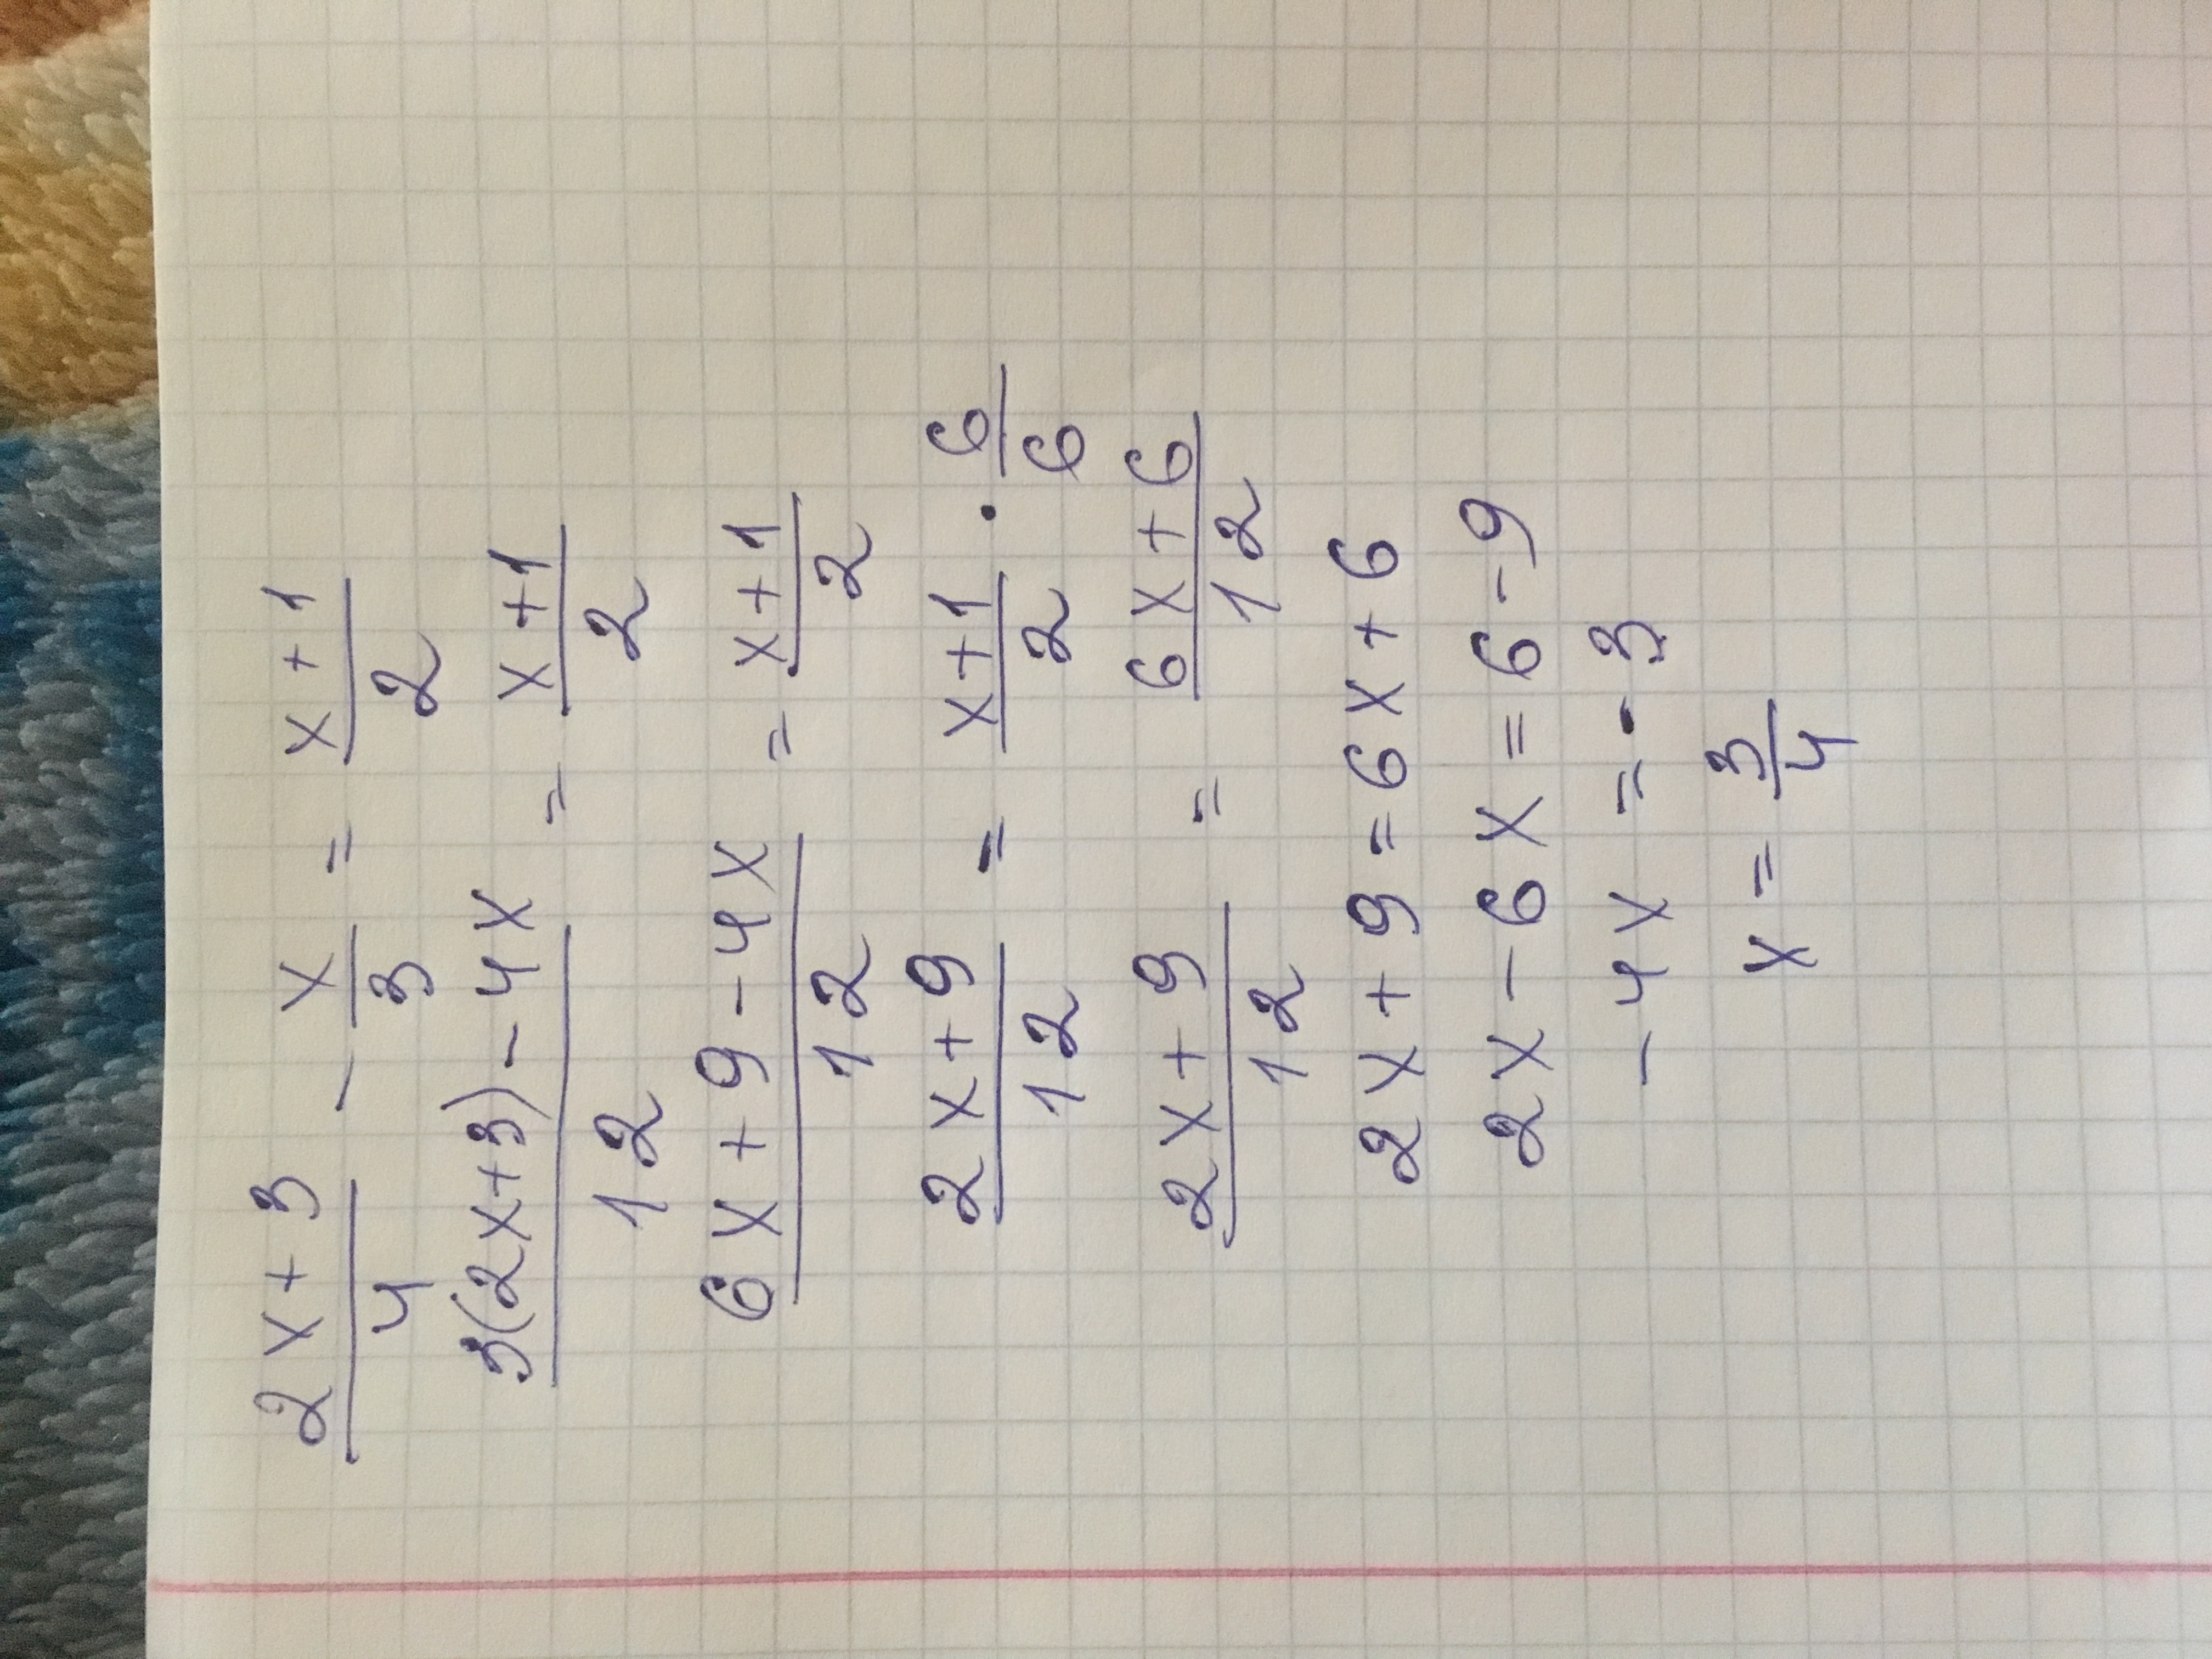 (2x+3)/4 - x/3 = (x+1)/2
(3(2x+3)-4x)/12 = (x+1)/2
(6x+9-4x)/12 = (x+1)/2
(2x+9)/12 = (x+1)/2 · 6/6
(2x+9)/12 = (6x+6)/12
2x+9=6x+6
2x-6x=6-9
-4x=-3
x=3/4